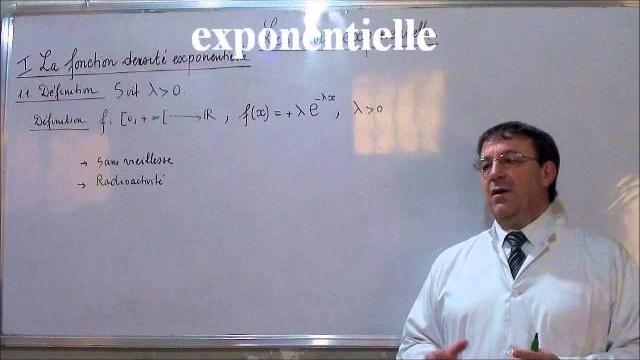 exponentielle
La loi exponentielle
I La fonction densité exponentielle
1.1. Définition Soit λ>0.
Définition f: [0, +∞[ → ℝ, f(x) = +λ e^{-λx}, λ>0
→ Sans vieillesse
→ Radioactivité